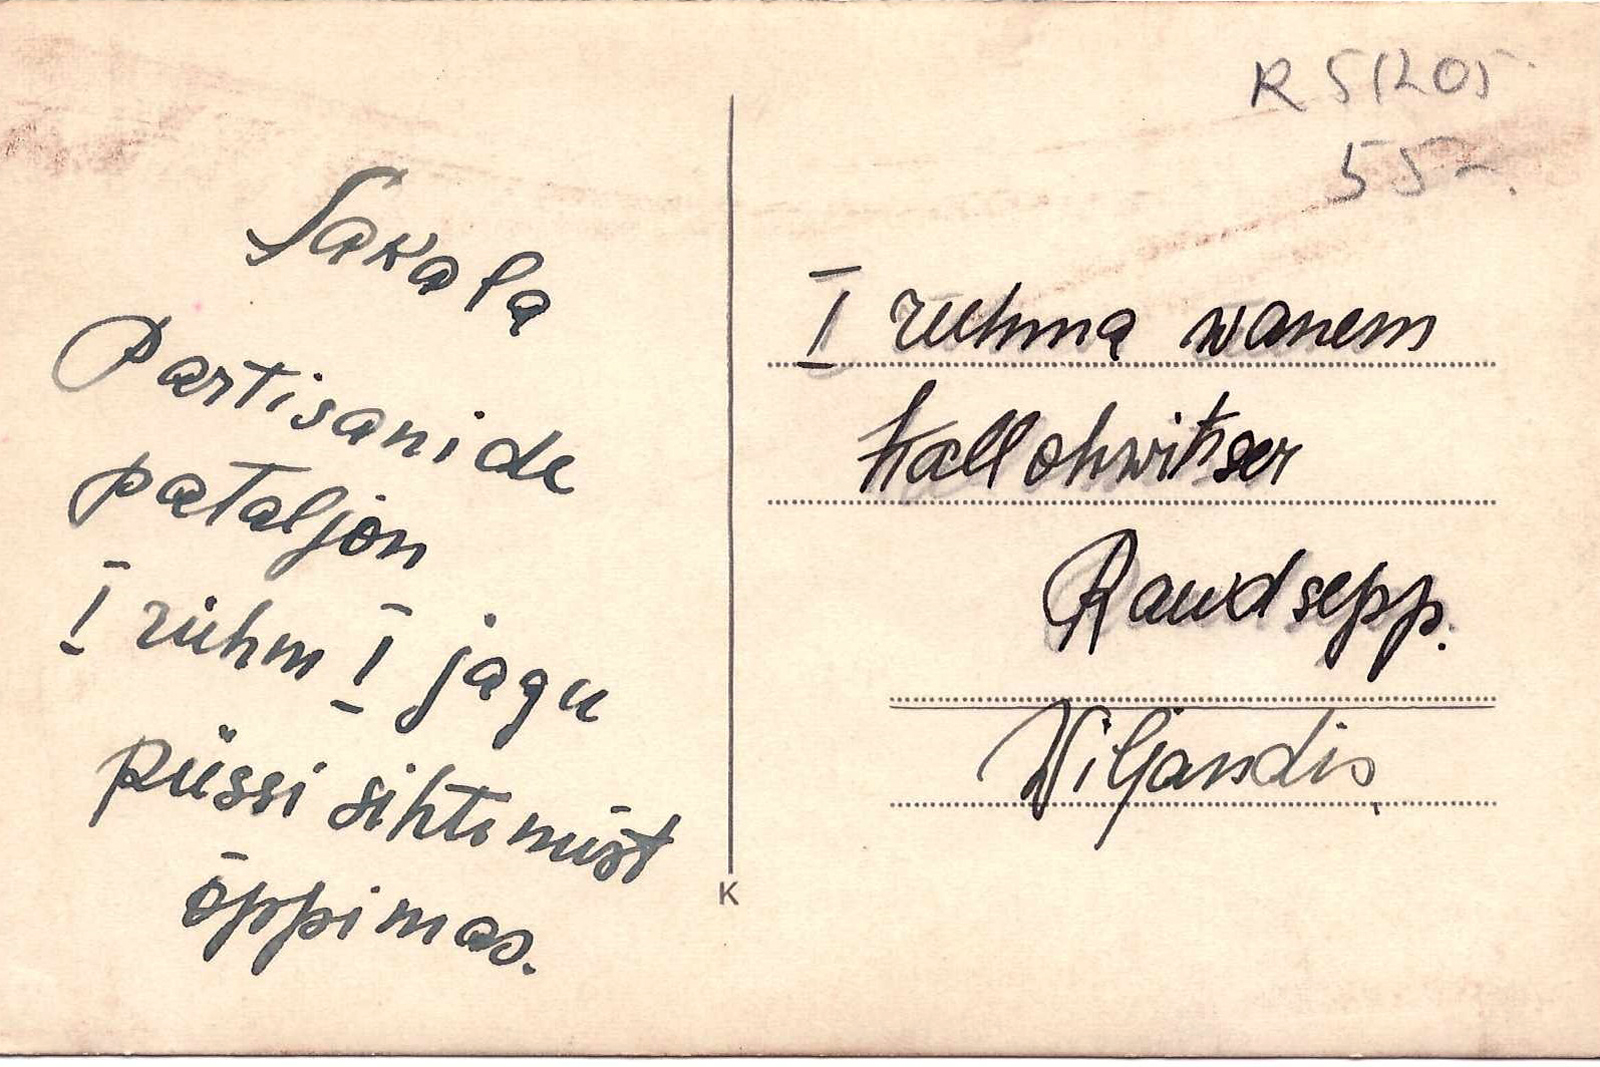 Sakala
Partisanide
pataljon
I rühm I jagu
püssi sihtimist
õppimas.
K
R 51205
55-.
I ruhma wanem
Kallohwitser
Raudsepp.
Viljandis